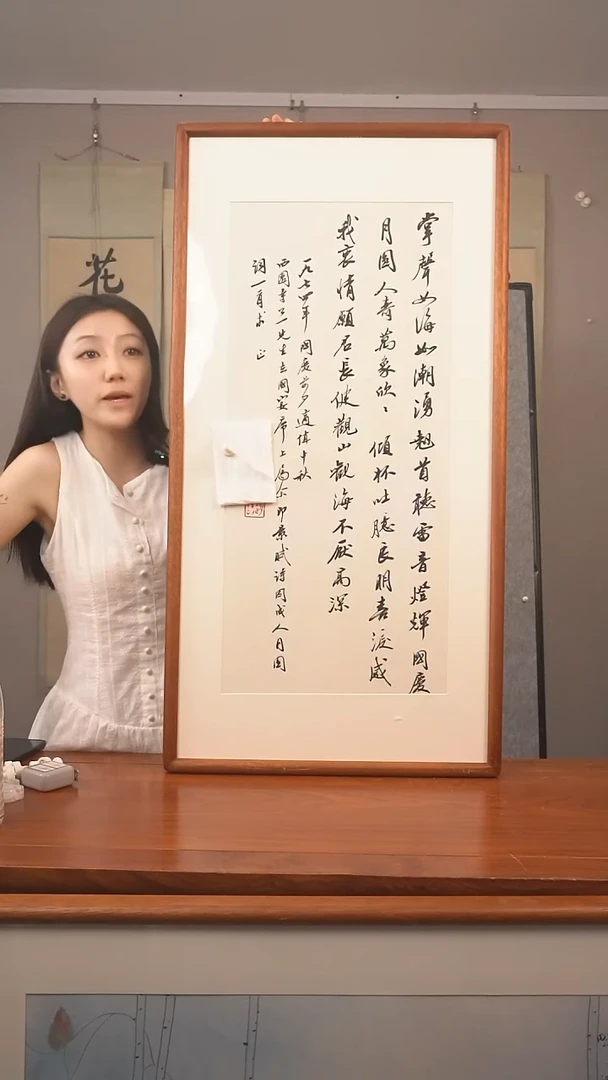 掌聲如海如潮湧翹首聽雷音燈輝國慶
月圓人壽萬象欣〻傾杯吐臆良朋喜淚感
我衷情願君長健觀山觀海不厭高深
一九七四年國慶前夕適值中秋
西園寺公一先生在國宴席上屬余即景賦詩因成人月圓
詞一首求正
花